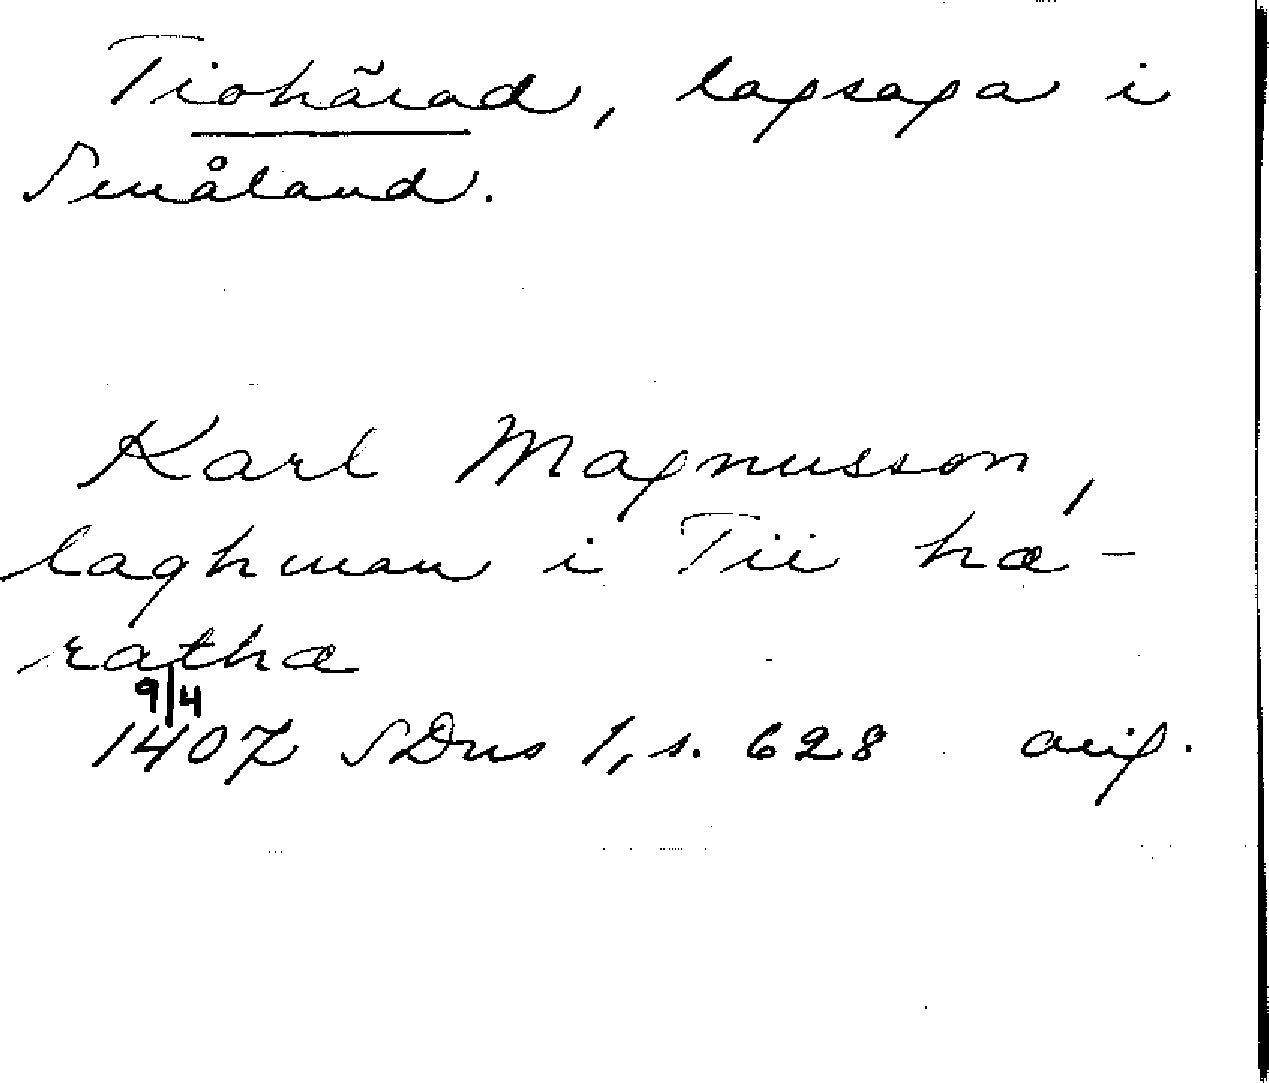 Tiohärad, lagsaga i
Småland.
Karl Magnusson,
laghman i Tii hæ-
rathæ
9/4
1407 SDns 1, s. 628 orig.